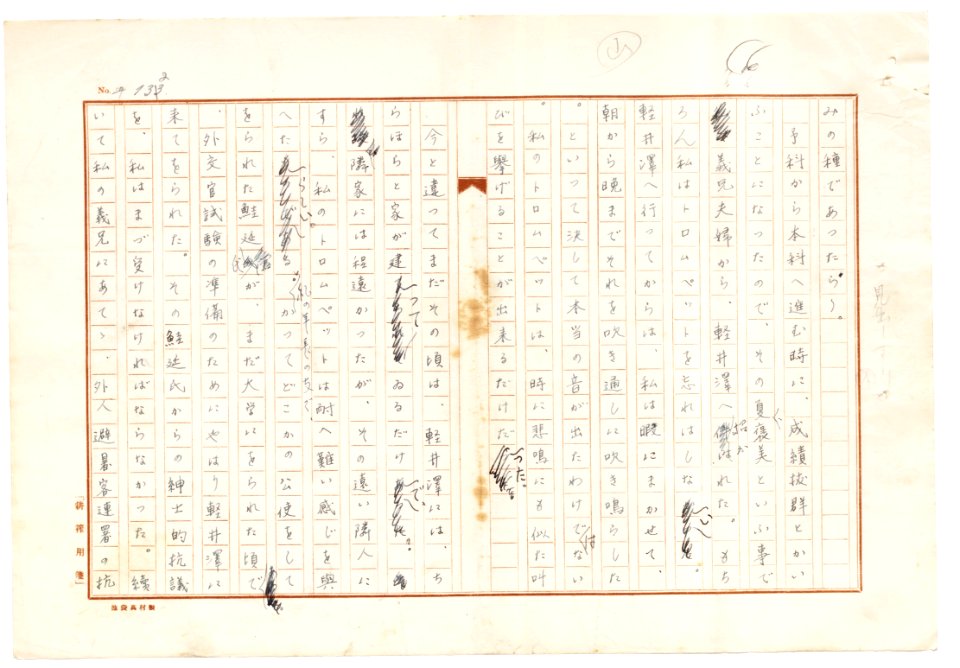 山
No. 4
みの種であったらう。
予科から本科へ進む時に、成績抜群とかい
ふことになったので、その夏褒美といふ事で
義兄夫婦から、軽井澤へ招かれた。もち
ろん私はトロムペットを忘れはしない。
軽井澤へ行ってからは、私は暇にまかせて、
朝から晩までそれを吹き通しに吹き鳴らした
。といって決して本当の音が出たわけではない
。私のトロムペットは、時に悲鳴にも似た叫
びを舉げることが出来るだけだった。
今と違ってまだその頃は、軽井澤には、ち
らほらと家が建ってゐるだけで、
隣家には程遠かったが、その遠い隣人に
すら、私のトロムペットは耐へ難い感じを與
へたらしい。私の年長の友で、かつてどこかの公使をして
をられた鮭延氏が、まだ大学にをられた頃で
、外交官試験の準備のためにやはり軽井澤に
来てをられた。その鮭延氏からの紳士的抗議
を、私はまづ受けなければならなかった。續
いて私の義兄にあてゝ、外人避暑客連署の抗